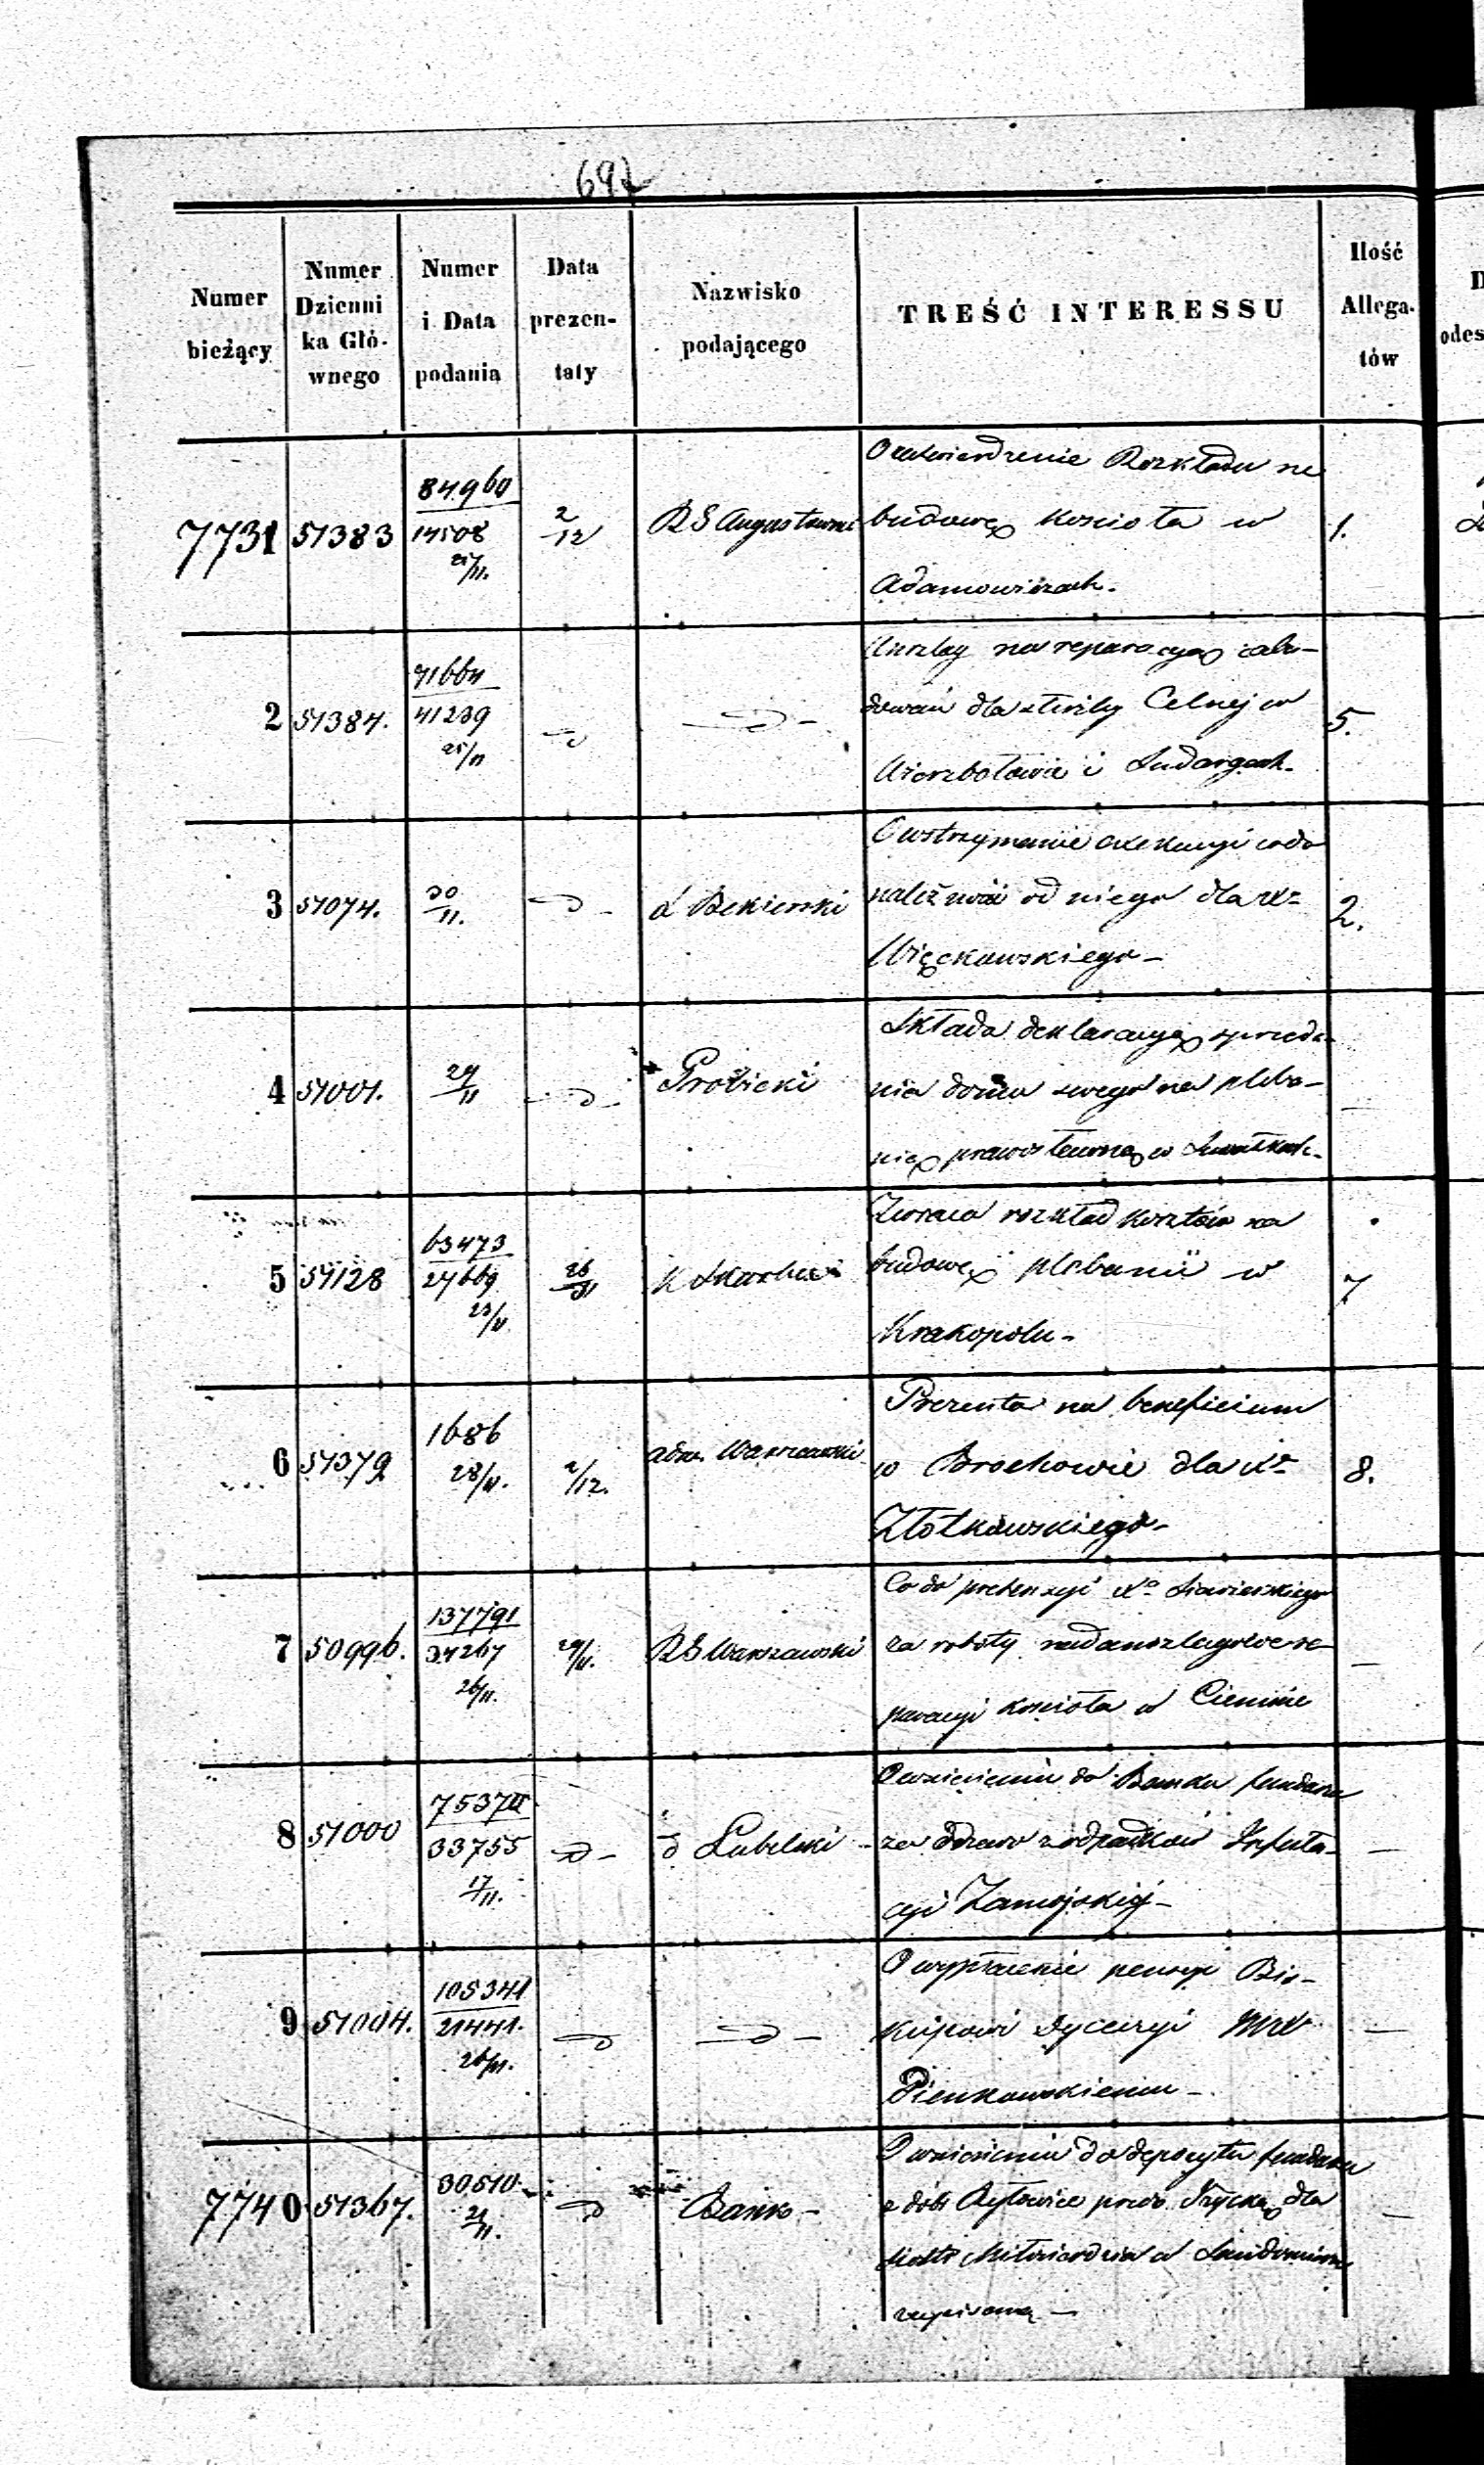 697
Numer bieżący
Numer Dzienni ka Głó- wnego
Numer i Data podania
Data prezen- taty
Nazwisko podającego
TREŚĆ INTERESSU
Ilość Allega- tów
7731 51383 84960 14508 27/11. 2/12 R G Augustowski 1.
O zatwierdzenie Rozkładu na
budowę kościoła w
Adamowiczach.
2 51384. 41239 25/11 5.
Anszlag na reparacyą zabu-
dowań dla straży Celnej w
Wierzbołowie i Sudargach.
3 51074. 30/11. Bekierski 2.
O wstrzymanie exekucyi co do
należności od niego dla X
Więckowskiego -
4 51001. 29/11
Składa deklaracyą sprzeda-
nia domu swego na pleba-
nię prawosławną w Suwałkach.
5 51128 63473 27669 23/11 26/11 K Skarbu 7
Zwraca rozkład kosztów na
budowę plebanii w
Krakopolu -
6 51379 1686 28/11. 2/12. Adm. Warszawski 8.
Prezenta na beneficium
w Brochowie dla X
Złotkowskiego -
7 50996. 137791 34267 26/11. 29/11. R G Warszawski -
Co do pretensyi X
za roboty nadanszlagowe re-
paracyi kościoła w Cieninie
8 51000 33755 17/11. d Lubelski -
O wniesieniu do Banku funduszu
za drzewo z odpadków Infuła-
cyi Zamojskiej -
9 51004. 105341 21441. 26/11. -
O wypłacenie pensyi Bis-
kupowi Dyecezyi
Pienkowskiemu -
7740 51367. 30510 21/11. Bank - -
O wniesieniu do depozytu funduszu
z dóbr Rytowice przez dla
Siostr Miłosierdzia w Sandomierzu
zapisaną -